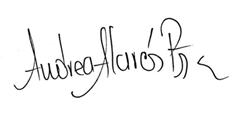 Andrea Alarcón